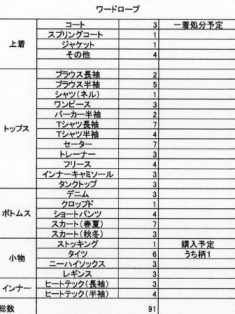 ワードローブ
上着 コート 3 一着処分予定
スプリングコート 1
ジャケット 1
その他 4
トップス ブラウス長袖 2
ブラウス半袖 5
シャツ(ネル) 1
ワンピース 3
パーカー半袖 2
Tシャツ長袖 7
Tシャツ半袖 4
セーター 7
トレーナー 3
フリース 4
インナーキャミソール 3
タンクトップ 3
ボトムス デニム 3
クロップド 1
ショートパンツ 4
スカート(春夏) 7
スカート(秋冬) 3
小物 ストッキング 1 購入予定
タイツ 6 うち柄1
ニーハイソックス 3
レギンス 3
インナー ヒートテック(長袖) 3
ヒートテック(半袖) 4
総数 91